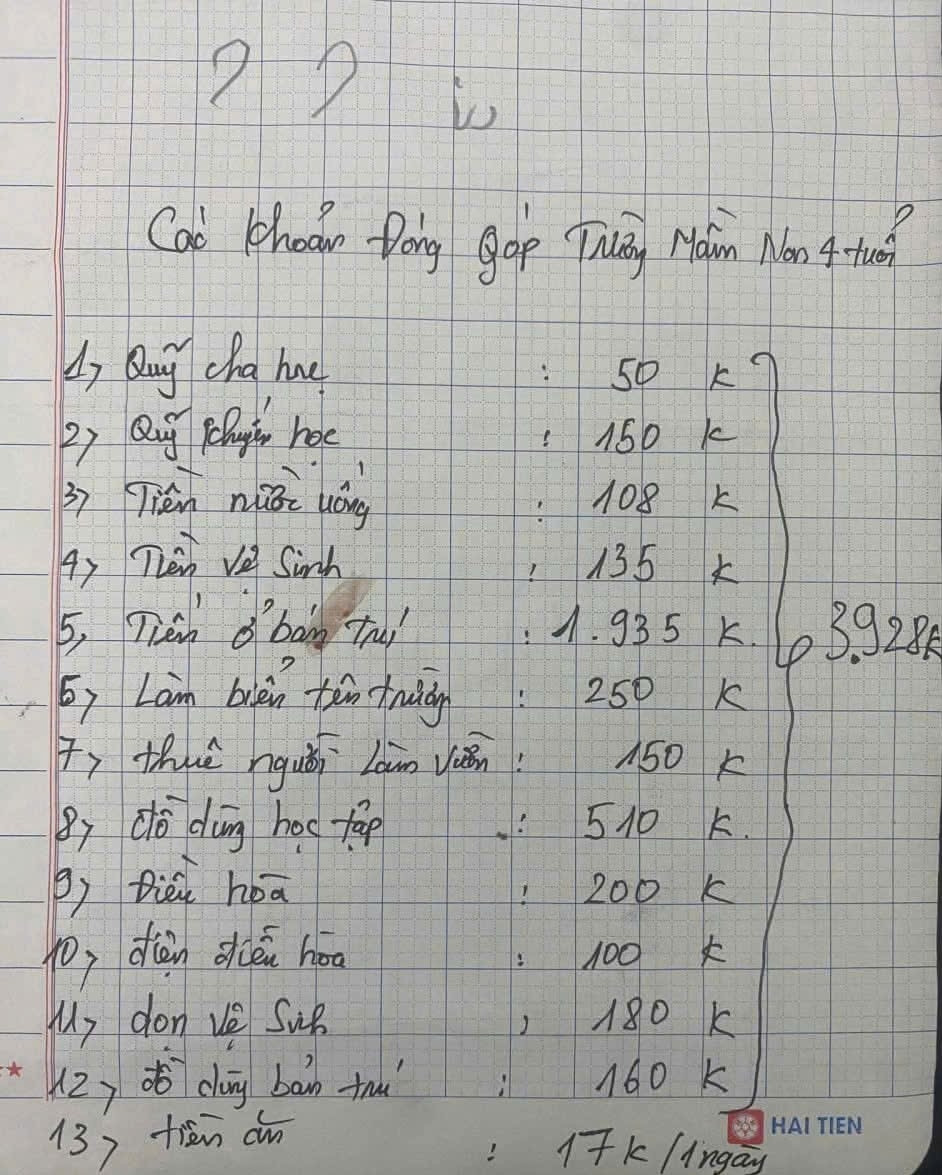 Các khoản Đóng góp Trường Mầm Non 4 tuổi
1, Quỹ cha mẹ : 50 K
2, Quỹ khuyến học : 150 K
3, Tiền nước uống : 108 K
4, Tiền vệ sinh : 135 K
5, Tiền ở bán trú : 1.935 K.
3.928K
6, Làm biển tên trường : 250 K
7, thuê người làm vườn : 150 K
8, đồ dùng học tập : 510 K.
9, Điều hòa : 200 K
10, điện điều hòa : 100 K
11, dọn vệ sinh : 180 K
12, đồ dùng bán trú : 160 K
HAI TIEN
13, tiền ăn : 17K/1ngày